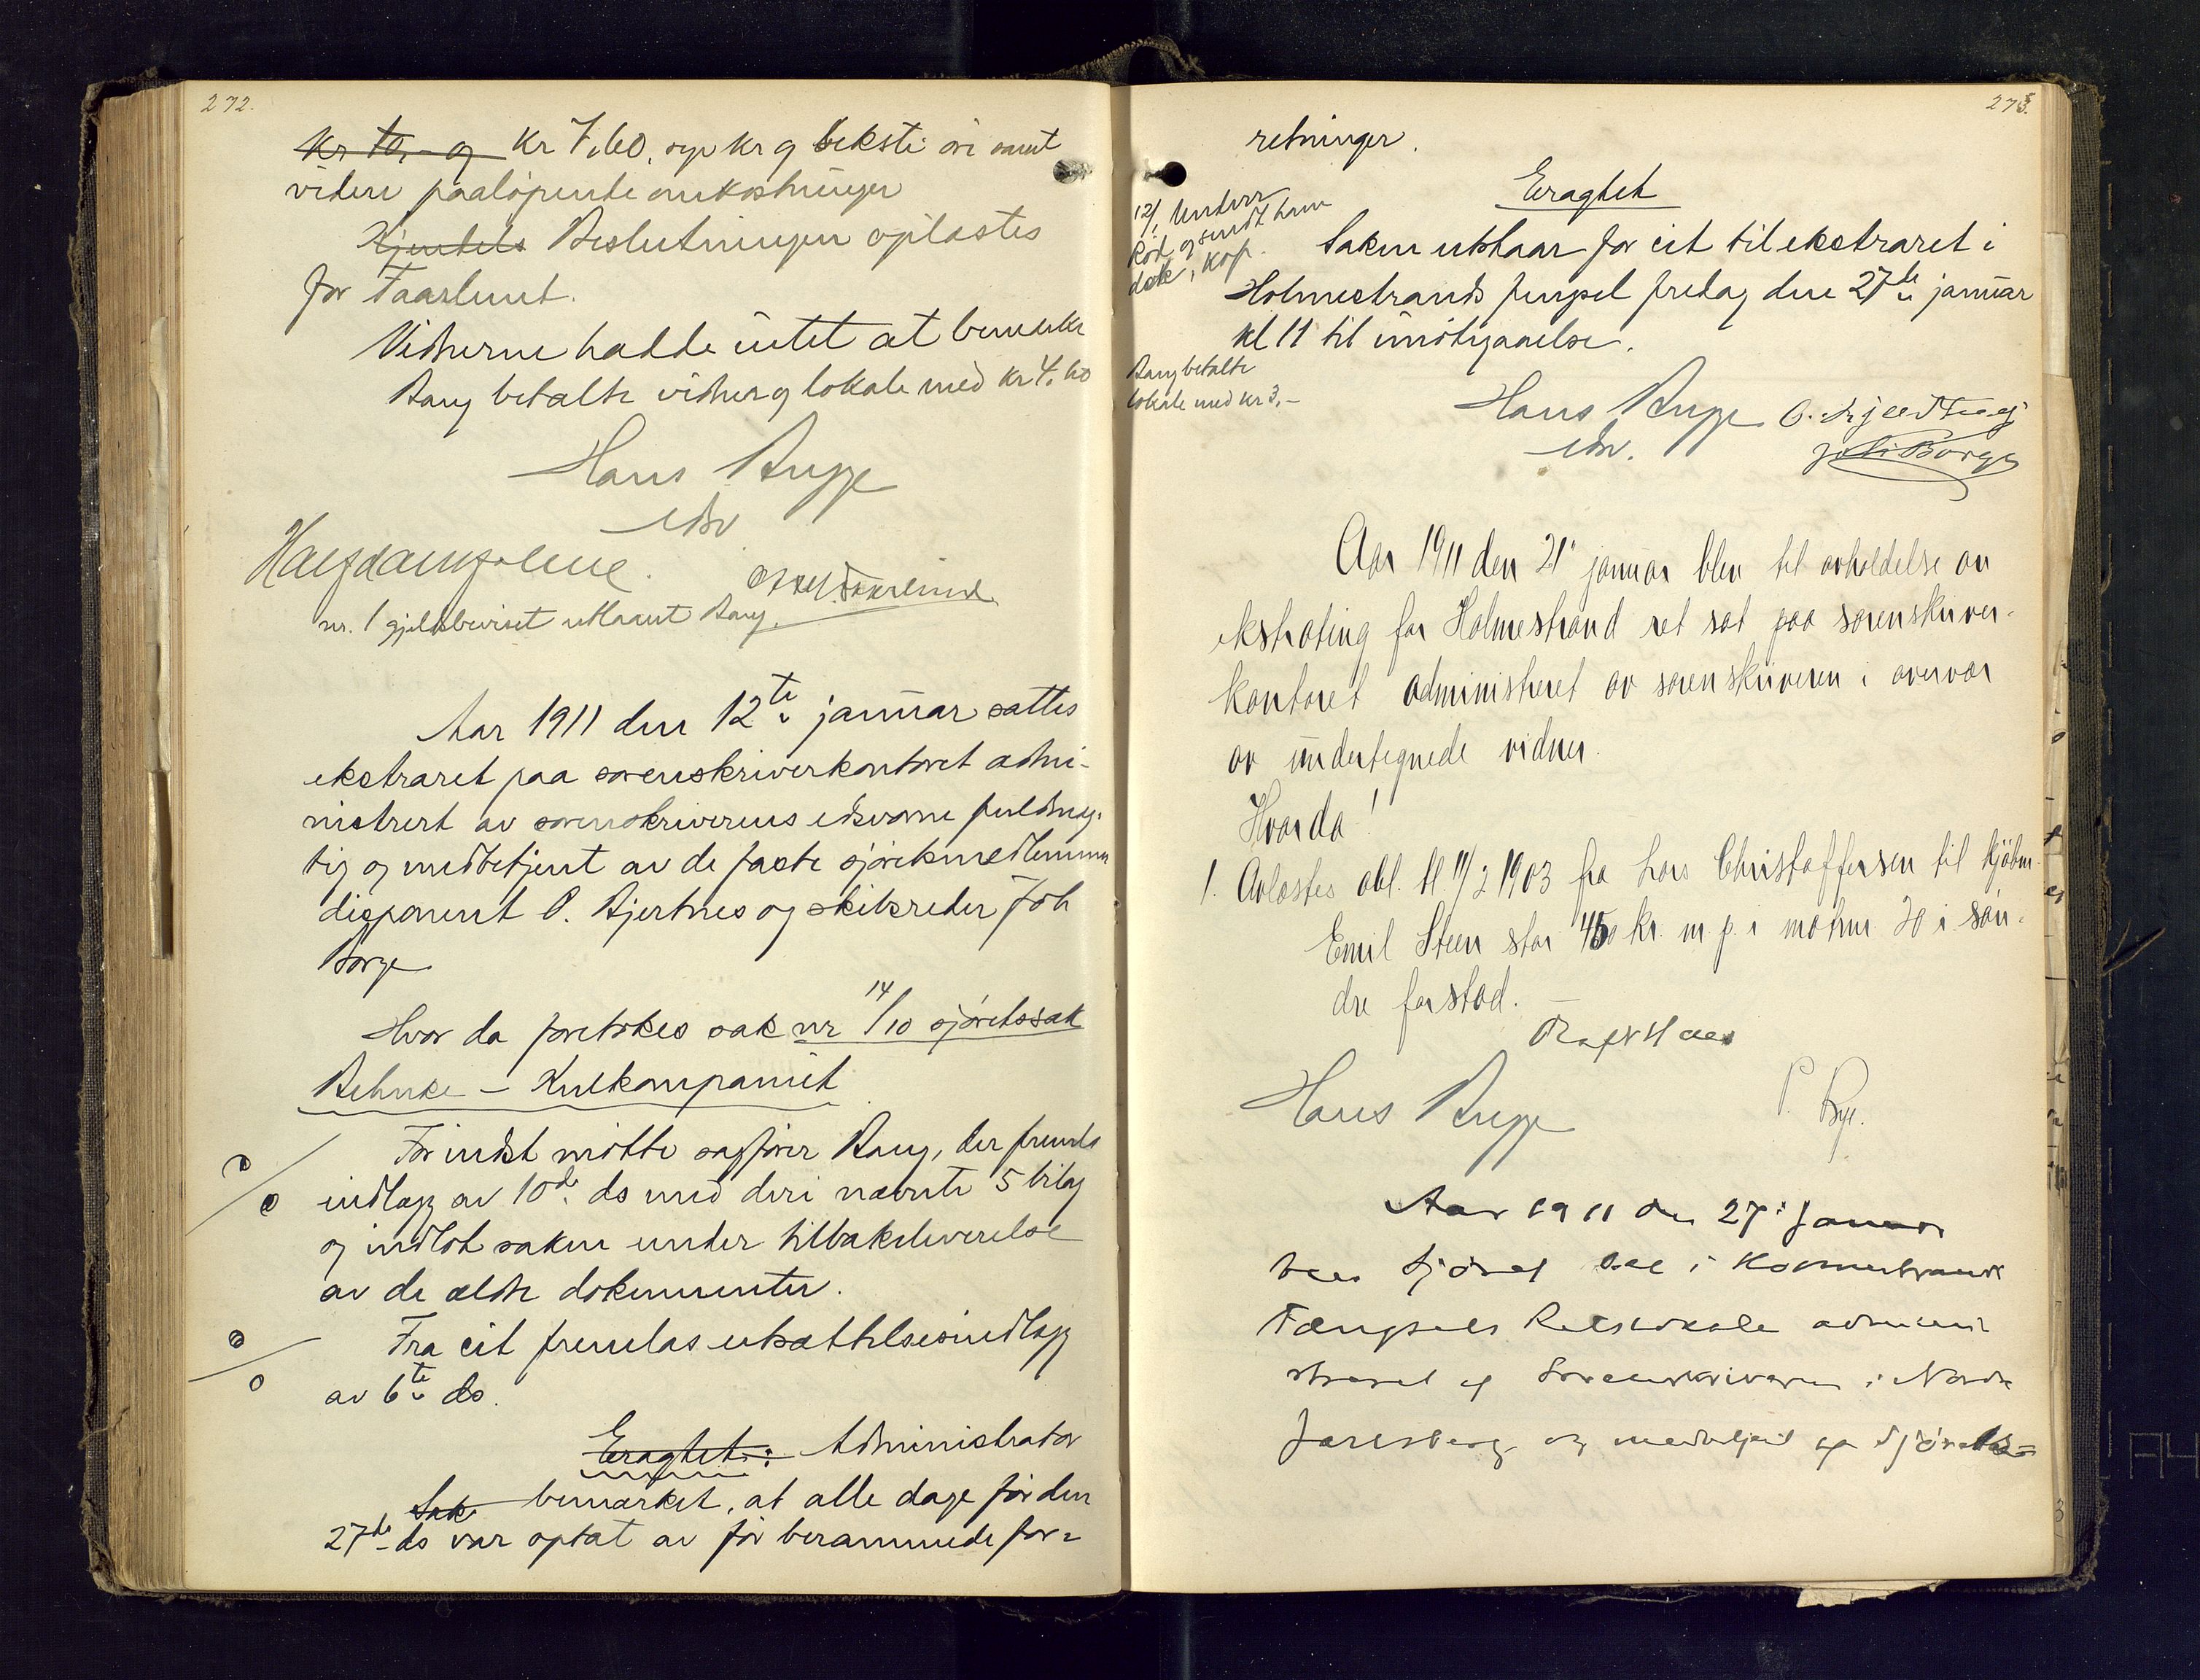 272.
kr 10,- og kr 7,60, syv kr og seksti øre samt
videre paaløpende omkostninger
Kjendels Beslutningen oplæstes
for Taarlund.
Vidnerne hadde intet at bemerke
Bang betalte vidner og lokale med kr 4.60
Hans Bugge
edsv
nr. 1 gjeldsbeviset utlaant Bang.
Aar 1911 den 12te januar sattes
ekstraret paa sorenskriverkontoret admi-
nistrert av sorenskriverens edsvorne fuldmæg-
tig og medbetjent av de faste sjøretsmedlemmer
disponent O. Hjertnes og skibsreder Joh
Borge
Hvor da foretokes sak nr 14/10 sjøretssak
Behnke – Kulkompaniet
For indst møtte sagfører Bang, der fremla
indlægg av 10de ds med deri nævnte 5 bilag
og indlot saken under tilbakeleverelse
av de ældre dokumenter.
Fra cit fremlas utsættelsesindlegg
av 6te ds.
Eragtet: Administrator
Sak bemerket, at alle dage før den
27de ds var optat av før berammede for=
273.
retninger.
Eragtet
12/1 Underr
og sendt ham
dok i kop.
Saken utstaar for cit til ekstraret i
Holmestrands fengsel fredag den 27de januar
kl 11 til imøtegaaelse.
Bang betalte
lokale med kr 3.–
Hans Bugge
edsv.
Joh Borge
Aar 1911 den 21' januar blev til avholdelse av
ekstrating for Holmestrand ret sat paa sorenskriver-
kontoret administreret av sorenskriveren i overvær
av undertegnede vidner.
Hvorda!
1. Avlæstes obl. tl. 11/2 1903 fra Lars Christoffersen til kjøbm.
Emil Steen stor 450 kr. m. p. i matrnr. 20 i søn-
dre forstad.
Hans Bugge
P. Bye.
Aar 1911 den 27' Januar
blev Sjøret sat i Holmestrand
Fængsels Retslokale admini
streret af Sorenskriveren i Nordre
Jarlsberg og medbetjent af Sjørets=